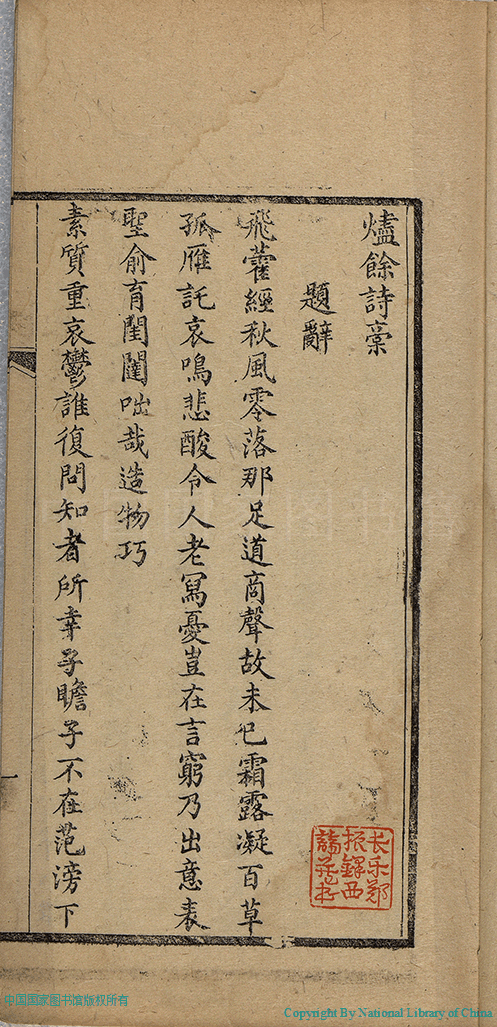 爐餘詩稾
題辭
飛藿經秋風零落那足道商聲故未已霜露凝百草
孤雁託哀鳴悲酸令人老寫憂豈在言窮乃出意表
聖俞育閨闥咄哉造物巧
素質重哀鬱誰復問知者所幸子瞻子不在范滂下
一
长乐郑
振铎西
谛藏书
中国国家图书馆版权所有
Copyright By National Library of China